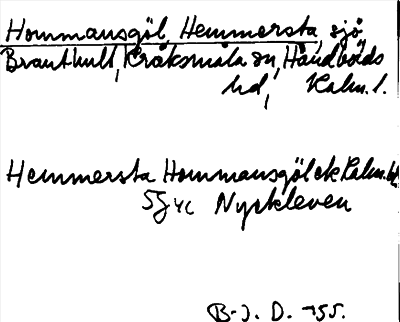 Hommansgöl, Hemmersta, sjö
Branthult, Kråksmåla sn, Handbörds
hd, Kalm. l.
Hemmersta Hommansgöl ek Kalm.
5G4c Nyckleven
B-J. D. 755.